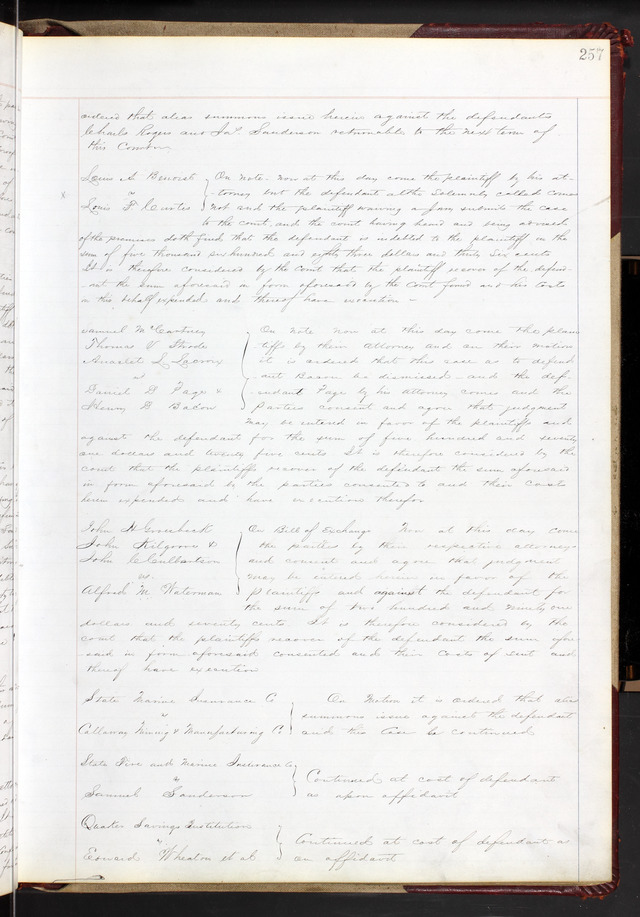 257
ordered that alias summons issue herein against the defendants
Charles Rogers and Jas. Sanderson returnable to the next term of
this Court
Louis A. Benoist } On note - Now at this day come the plaintiff by his at-
vs } -torney but the defendant altho Solemnly called comes
Louis F. Curtis } not and the plaintiff waiving a jury submits the case
to the court, and the court having heard and being advised
of the premises doth find that the defendant is indebted to the plaintiff in the
sum of five thousand six hundred and eighty three dollars and thirty six cents
It is therefore considered by the Court that the plaintiff recover of the defend-
-ant the sum aforesaid in form aforesaid by the Court found and his costs
in this behalf expended and thereof have execution -
Samuel McCartney } On note Now at this day come the plain
Thomas V. Strode } tiffs by their attorney and on their motion
Anaclet L Lacroix } it is ordered that this case as to defend
vs } ant Bacon be dismissed - and the def-
Daniel D. Page & } endant Page by his attorney comes and the
Henry D Bacon } Parties consent and agree that judgment
may be entered in favor of the plaintiffs and
against the defendant for the sum of five hundred and seventy
one dollars and twenty five cents It is therefore considered by the
court that the plaintiffs recover of the defendant the sum aforesaid
in form aforesaid by the parties consented to and their costs
herein expended and have execution therefor
John H. } On Bill of Exchange Now at this day come
John Kilgoore & } the parties by their respective attorneys
John Culbertson } and consent and agree that judgment
vs. } may be entered herein in favor of the
Alfred M. Waterman } plaintiffs and against the defendant for
the sum of two hundred and ninety one
dollars and seventy cents It is therefore considered by the
court that the plaintiffs recover of the defendant the sum afore
-said in form aforesaid consented and their costs of suit and
thereof have execution
State Marine Insurance Co } On Motion it is ordered that alias
vs } summons issue against the defendant
Callaway Mining & Manufacturing Co } and this case be continued
State Fire and Marine Insurance Co }
vs } Continued at cost of defendant
Samuel Sanderson } as upon affidavit
Quaker Savings Institution }
vs } Continued at cost of defendant
Edward Wheaton et al } on affidavit